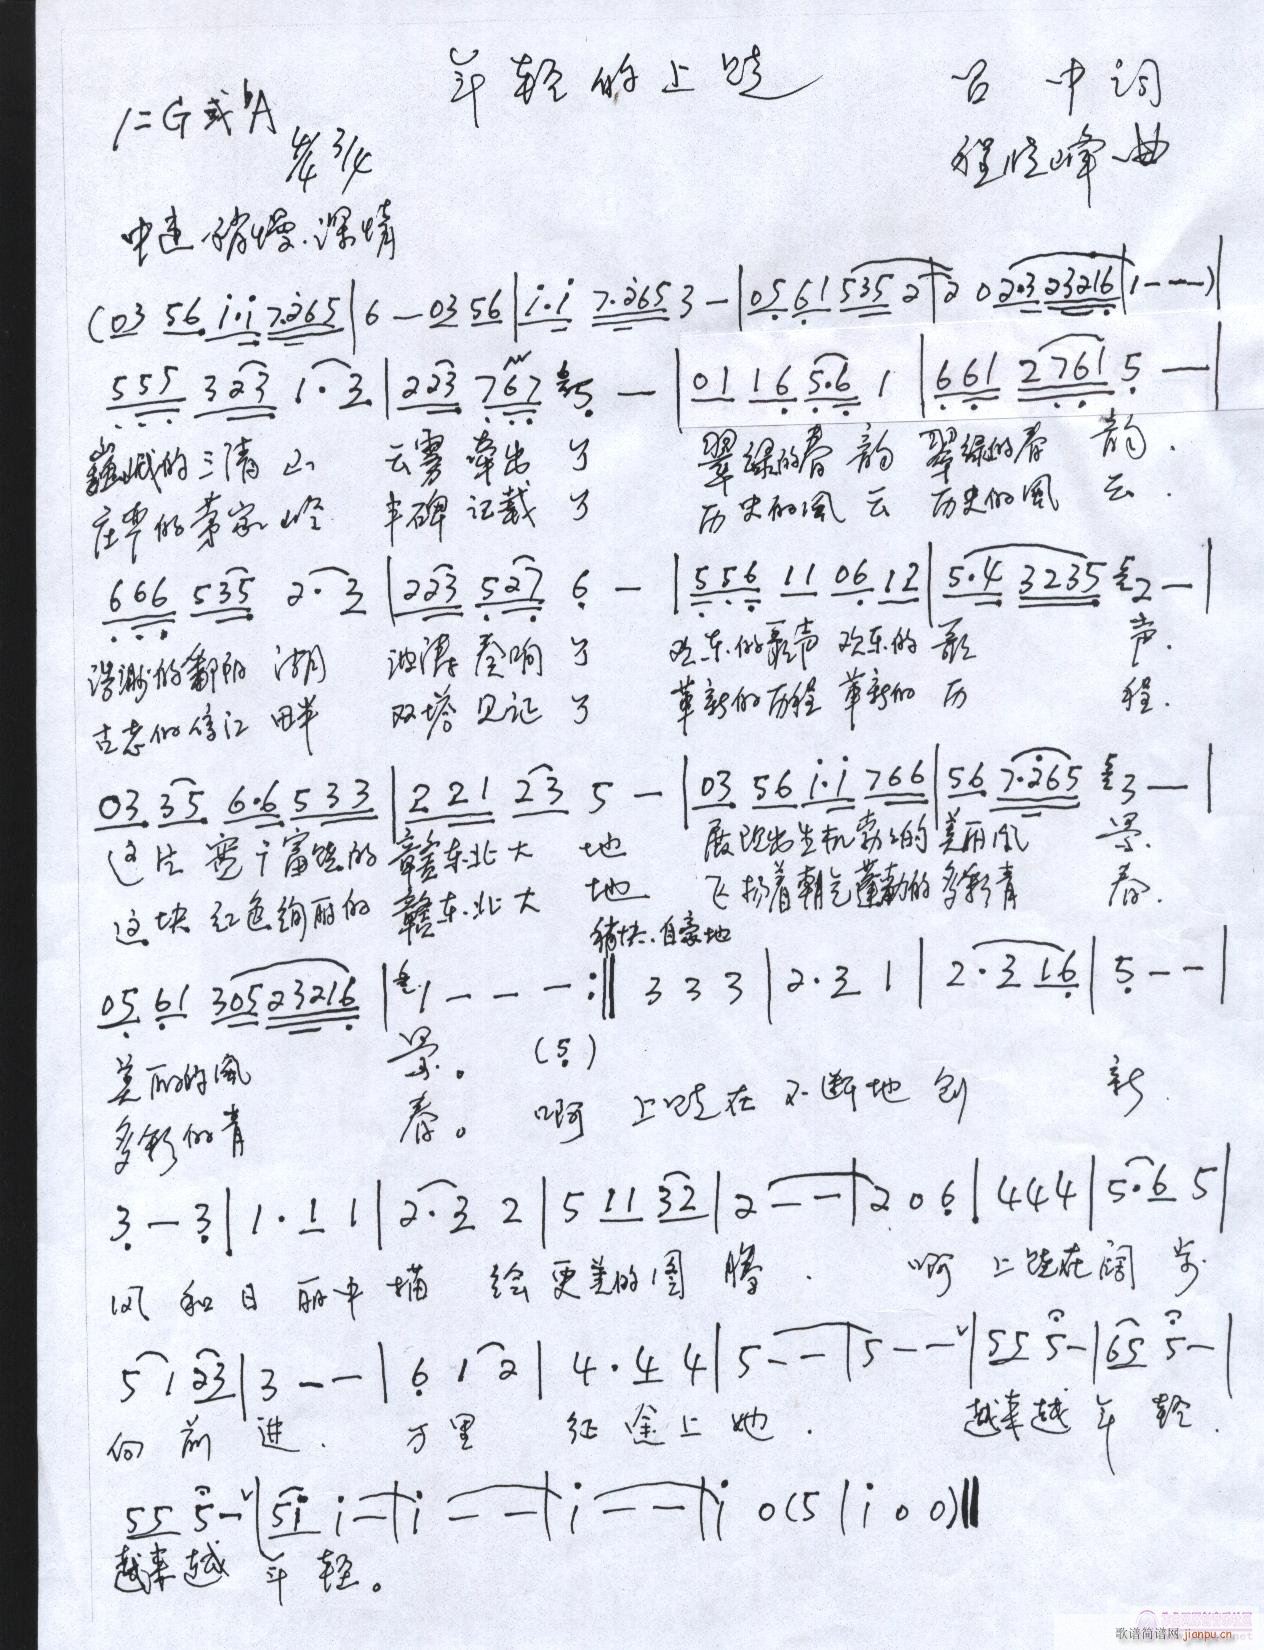 年轻的上饶
吕中词
1=G或♭A
4/4 3/4
程晓峰曲
中速 稍慢.深情
(03 56 i·i 7·265 | 6 — 03 56 | i·i 7·265 3 — | 05 61 535 2 | 2 0 2·3 23216 | 1 — — — )
555 323 1·3 | 223 767 5 — | 01 16 5·6 1 | 661 2761 5 — |
巍峨的三清山 云雾牵出了 翠绿的春韵 翠绿的春韵.
庄严的茅家岭 丰碑记载了 历史的风云 历史的风云.
666 535 2·3 | 223 527 6 — | 556 11 06 12 | 5·4 3235 2 — |
浩渺的鄱阳湖 波涛奏响了 欢乐的歌声 欢乐的歌声.
古老的信江畔 双塔见证了 革新的历程 革新的历程.
03 35 6·6 533 | 221 23 5 — | 03 56 i·i 766 | 56 7·265 3 — |
这片宽广富饶的赣东北大地 展现出生机勃勃的美丽风景.
这块红色绚丽的赣东北大地 飞扬着朝气蓬勃的多彩青春.
稍快.自豪地
05 61 305 23216 | 1 — — — :‖ 3 3 3 | 2·3 1 | 2·3 16 | 5 — — |
美丽的风景。 (5)
多彩的青春。 啊 上饶在不断地创新.
3 — 3 | 1·1 1 | 2·3 2 | 5 11 32 | 2 — — | 2 0 6 | 4 4 4 | 5·6 5 |
风和日丽中描绘更美的图腾. 啊 上饶在阔步
5 1 23 | 3 — — | 6 1 2 | 4·4 4 | 5 — — | 5 — — | 55 5 — | 65 5 — |
向前进. 万里征途上她. 越来越年轻.
55 5 — | 5i i — | i — — | i — — | i 0 (5 | i 0 0) ‖
越来越年轻。
歌谱简谱网 jianpu.cn